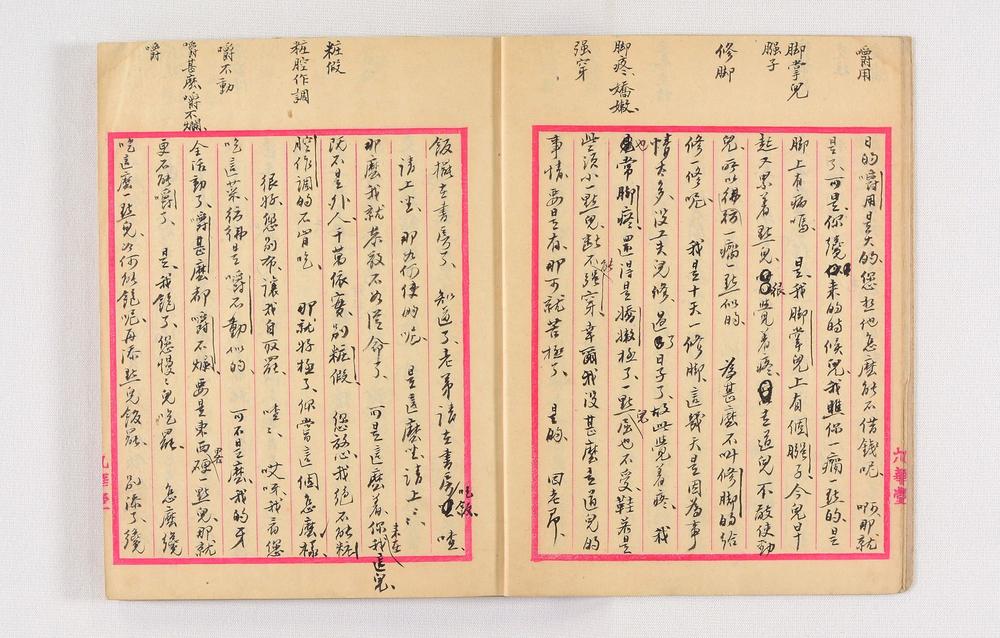 嚼用
脚掌兒
膙子
修脚
脚疼 嬌嫩
强穿
日的嚼用是大的您想他怎麽能不借錢呢 啊那就
是了可是你纔来的時候兒我瞧你一瘸一點的是
脚上有病嗎 是我脚掌兒上有個膙子今兒早
起又累着點兒很覺着疼走道兒不敢使勁
兒所以彷彿一瘸一點似的 爲甚麽不叫修脚的給
修一修呢 我是十天一修脚這幾天是因爲事
情太多没工夫兒修過了日子了故此覺着疼 我
也常脚疼還得是嬌嫩極了一點兒也不受鞋若是
些須小一點兒斷不能强穿幸爾我没甚麽走道兒的
事情要是有那可就苦極了 是的 回老爺
粧假
粧腔作調
嚼不動
嚼甚麽嚼不爛
嚼
飯擺在書房了 知道了老弟請在書房吃飯 喳
請上坐 那如何使的呢 是這麽坐請上上 未在
那麽我就恭敬不如從命了 可是這麽着你我這兒
既不是外人千萬依實别粧假 您放心我絶不能粧
腔作調的不肯吃 那就好極了你嘗這個怎麽樣
很好您别布讓我自取罷 喳喳 哎呀我看您
吃這菜彷彿是嚼不動似的 可不是麽我的牙
全活動了嚼甚麽都嚼不爛要是東西硬一點兒那就
更不能嚼了 是我飽了您慢慢兒吃罷 怎麽纔
吃這麽一點兒如何能飽呢再添點兒飯罷 别添了纔
九華堂